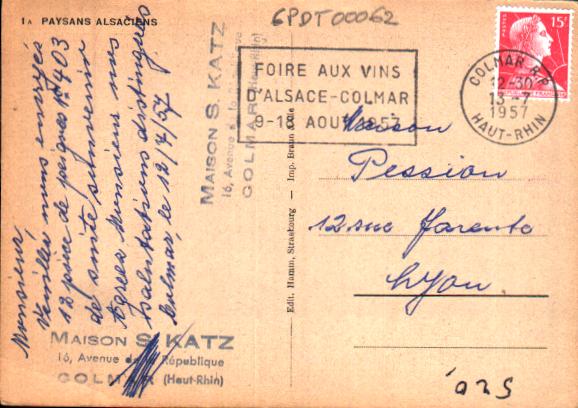 1A PAYSANS ALSACIENS
6PDT00062
Monsieur,
Veuillez nous envoyés
12 pièce de peignes No 403
de suite
Agrés Monsieur nos
salutations distinguées
Colmar, le 12/7/57
MAISON S. KATZ
16, Avenue de la République
COLMAR (Haut-Rhin)
MAISON S. KATZ
16, Avenue de la République
COLMAR (Haut-Rhin)
Edit. Hamm, Strasbourg — Imp. Braun & Cie
FOIRE AUX VINS
D'ALSACE-COLMAR
9-18 AOUT 1957
COLMAR R.P.
12-30
13-7
1957
HAUT-RHIN
15F
Maison
Pession
12 rue Farente
Lyon